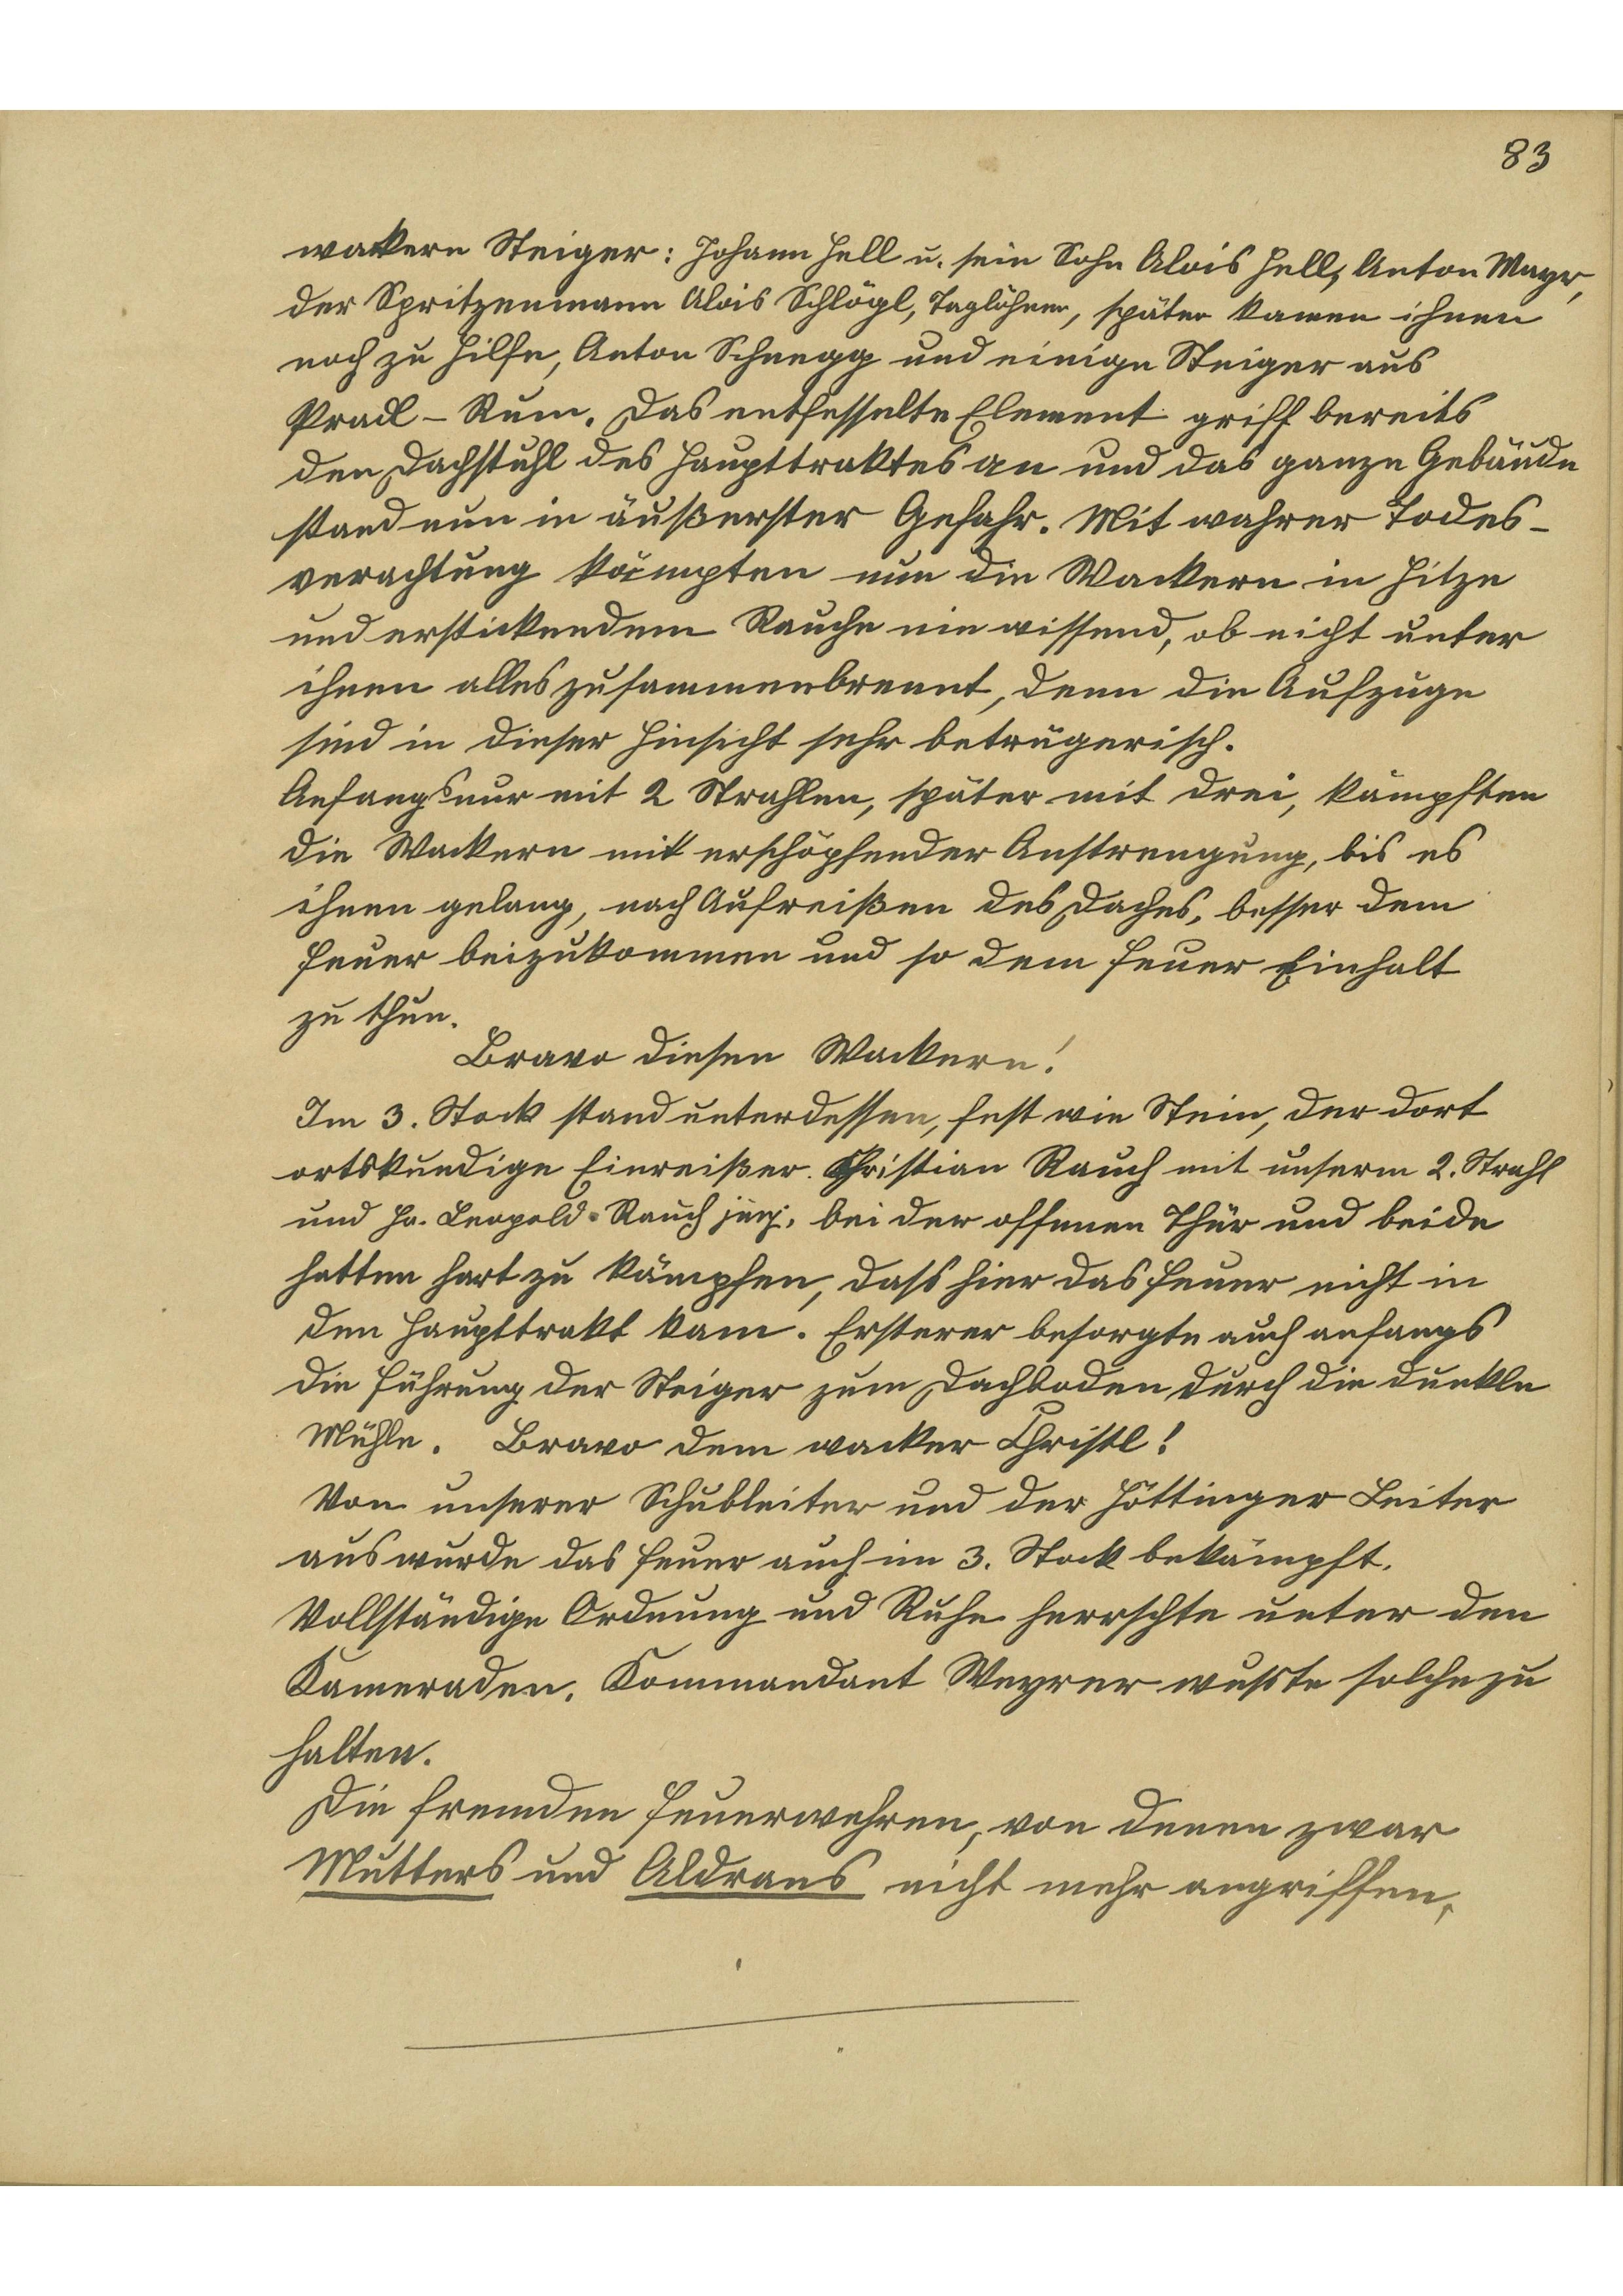 83
wackern Steiger: Johann Hell u. sein Sohn Alois Hell, Anton Mayr,
der Spritzenmann Alois Schlögl, Taglöhner, später kamen ihnen
noch zu Hilfe, Anton Schnegg und einige Steiger aus
Pradl – Rum. Das entfesselte Element griff bereits
den Dachstuhl des Haupttraktes an und das ganze Gebäude
stand nun in äußerster Gefahr. Mit wahrer Todes-
verachtung kämpten nun die Wackern in Hitze
und erstickendem Rauche nie wissend, ob nicht unter
ihnen alles zusammenbrennt, denn die Aufzuge
sind in dieser Hinsicht sehr betrügerisch.
Anfangs nur mit 2 Strahlen, später mit drei, kämpften
die Wackern mit erschöpfender Anstrengung, bis es
ihnen gelang, nach Aufreißen des Daches, besser dem
Feuer beizukommen und so dem Feuer Einhalt
zu thun.
Bravo diesen Wackern!
Im 3. Stock stand unterdessen, fest wie Stein, der dort
ortskundige Einreißer Christian Rauch mit unserm 2. Strahl
und Hr. Leopold Rauch junj. bei der offenen Thür und beide
hatten hart zu kämpfen, dass hier das Feuer nicht in
den Haupttrakt kam. Ersterer besorgte auch anfangs
die Führung der Steiger zum Dachboden durch die dunkle
Mühle. Bravo dem wacker Christl!
Von unserer Schubleiter und der Höttinger Leiter
aus wurde das Feuer auch im 3. Stock bekämpft.
Vollständige Ordnung und Ruhe herrschte unter den
Kameraden. Kommandant Weyrer wusste solche zu
halten.
Die fremden Feuerwehren, von denen zwar
Mutters und Aldrans nicht mehr angriffen,